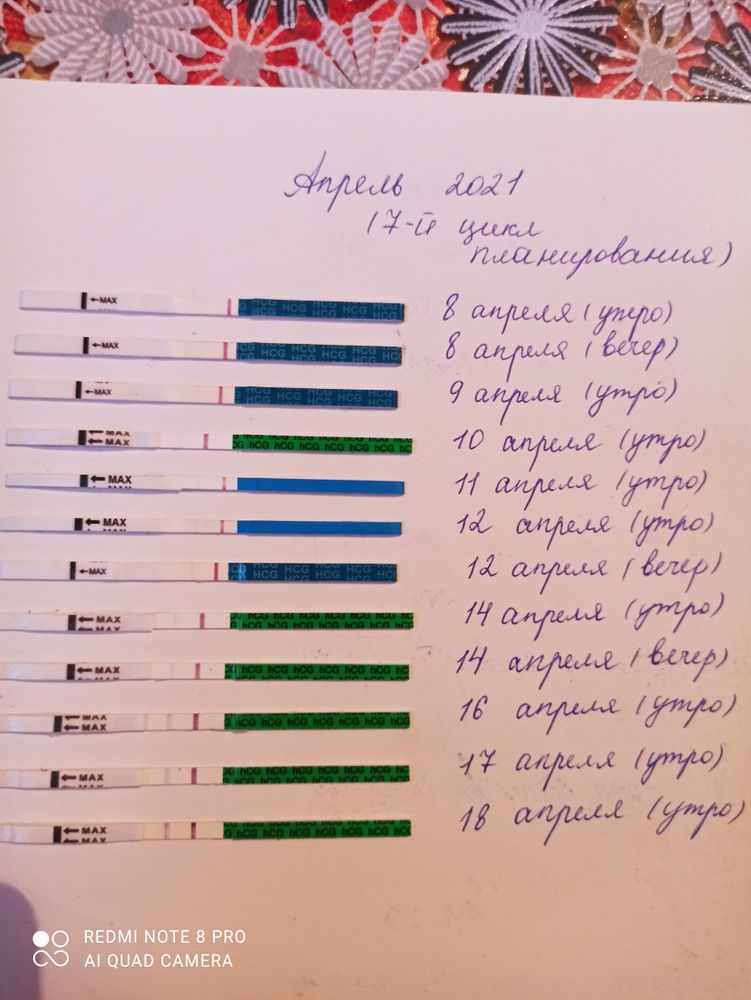 Апрель 2021
(7-й цикл
планирования)
←MAX 8 апреля (утро)
HCG HCG HCG HCG
←MAX 8 апреля (вечер)
HCG HCG HCG HCG
←MAX 9 апреля (утро)
HCG HCG HCG HCG
←MAX hCG hCG hCG hCG hCG hCG 10 апреля (утро)
←MAX 11 апреля (утро)
←MAX 12 апреля (утро)
←MAX HCG HCG HCG HCG 12 апреля (вечер)
←MAX hCG hCG hCG hCG hCG hCG 14 апреля (утро)
←MAX hCG hCG hCG hCG hCG 14 апреля (вечер)
←MAX hCG hCG hCG hCG hCG 16 апреля (утро)
←MAX hCG hCG hCG hCG hCG 17 апреля (утро)
←MAX hCG hCG hCG hCG hCG 18 апреля (утро)
REDMI NOTE 8 PRO
AI QUAD CAMERA